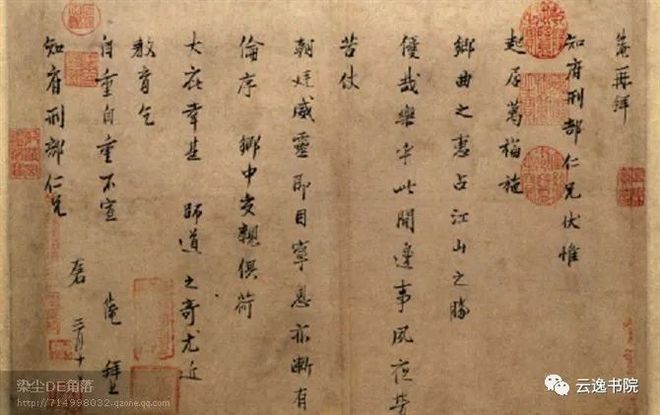 淹再拜
知府刑部仁兄伏惟
起居萬福施
鄉曲之惠占江山之勝
優哉樂乎此間邊事夙夜勞
苦仗
朝廷威靈即目寧息亦漸有
倫序 鄉中交親俱荷
大庇幸甚 師道之奇尤近
教育乞
自重自重不宣 淹 拜上
知府刑部仁兄
三月十
染尘DE角落
http://714998032.qzone.qq.com
云逸书院